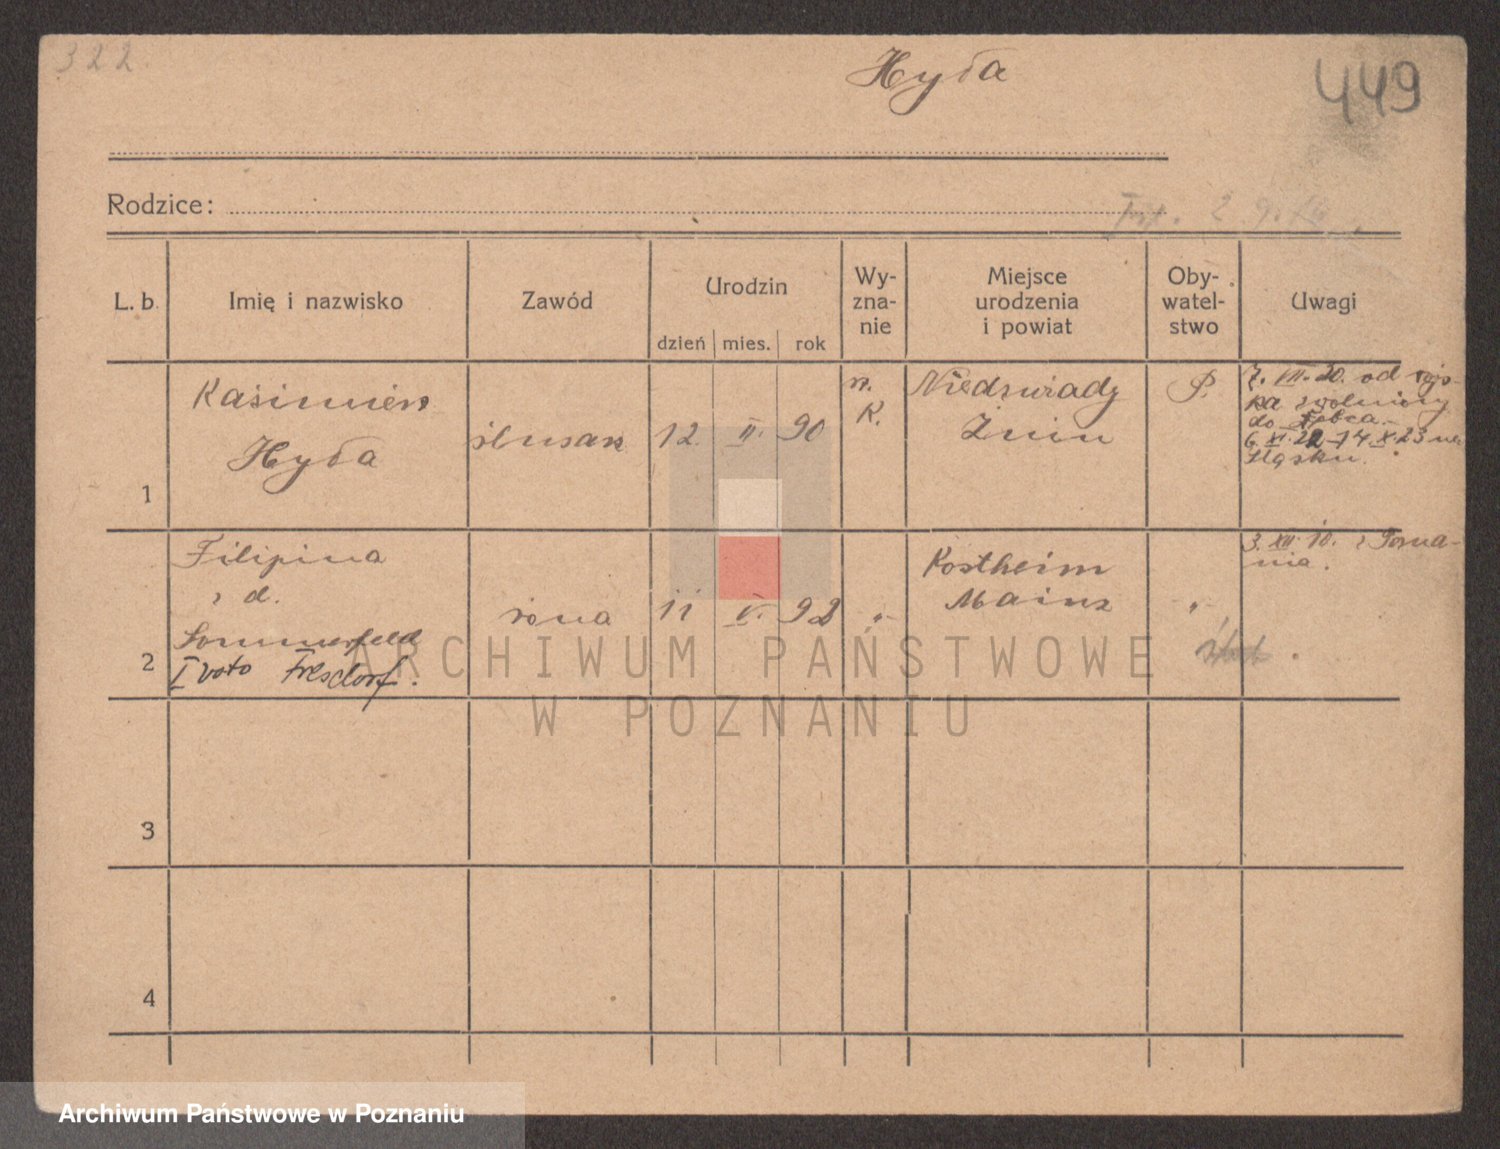 322.
Hyła
449
Rodzice:
2
L. b. Imię i nazwisko Zawód Urodzin Wy-zna-nie Miejsce urodzenia i powiat Oby-watel-stwo Uwagi
dzień mies. rok
1 Kaźimierz Hyła ślusarz 12. II. 90 r. K. Niedzwiady Żnin P. 7. VII. 20. od wojs-
ka zwolniony
do
6. XI. 22 - 14. X. 23 na
Śląsku.
2 Filipina
z d.
Sommerfeld
I voto Fresdorf.
żona 11 V. 92 -"- Kostheim Mainz -"- 3. XII. 10. z Pozna-
nia.
3
4
ARCHIWUM PAŃSTWOWE
W POZNANIU
Archiwum Państwowe w Poznaniu